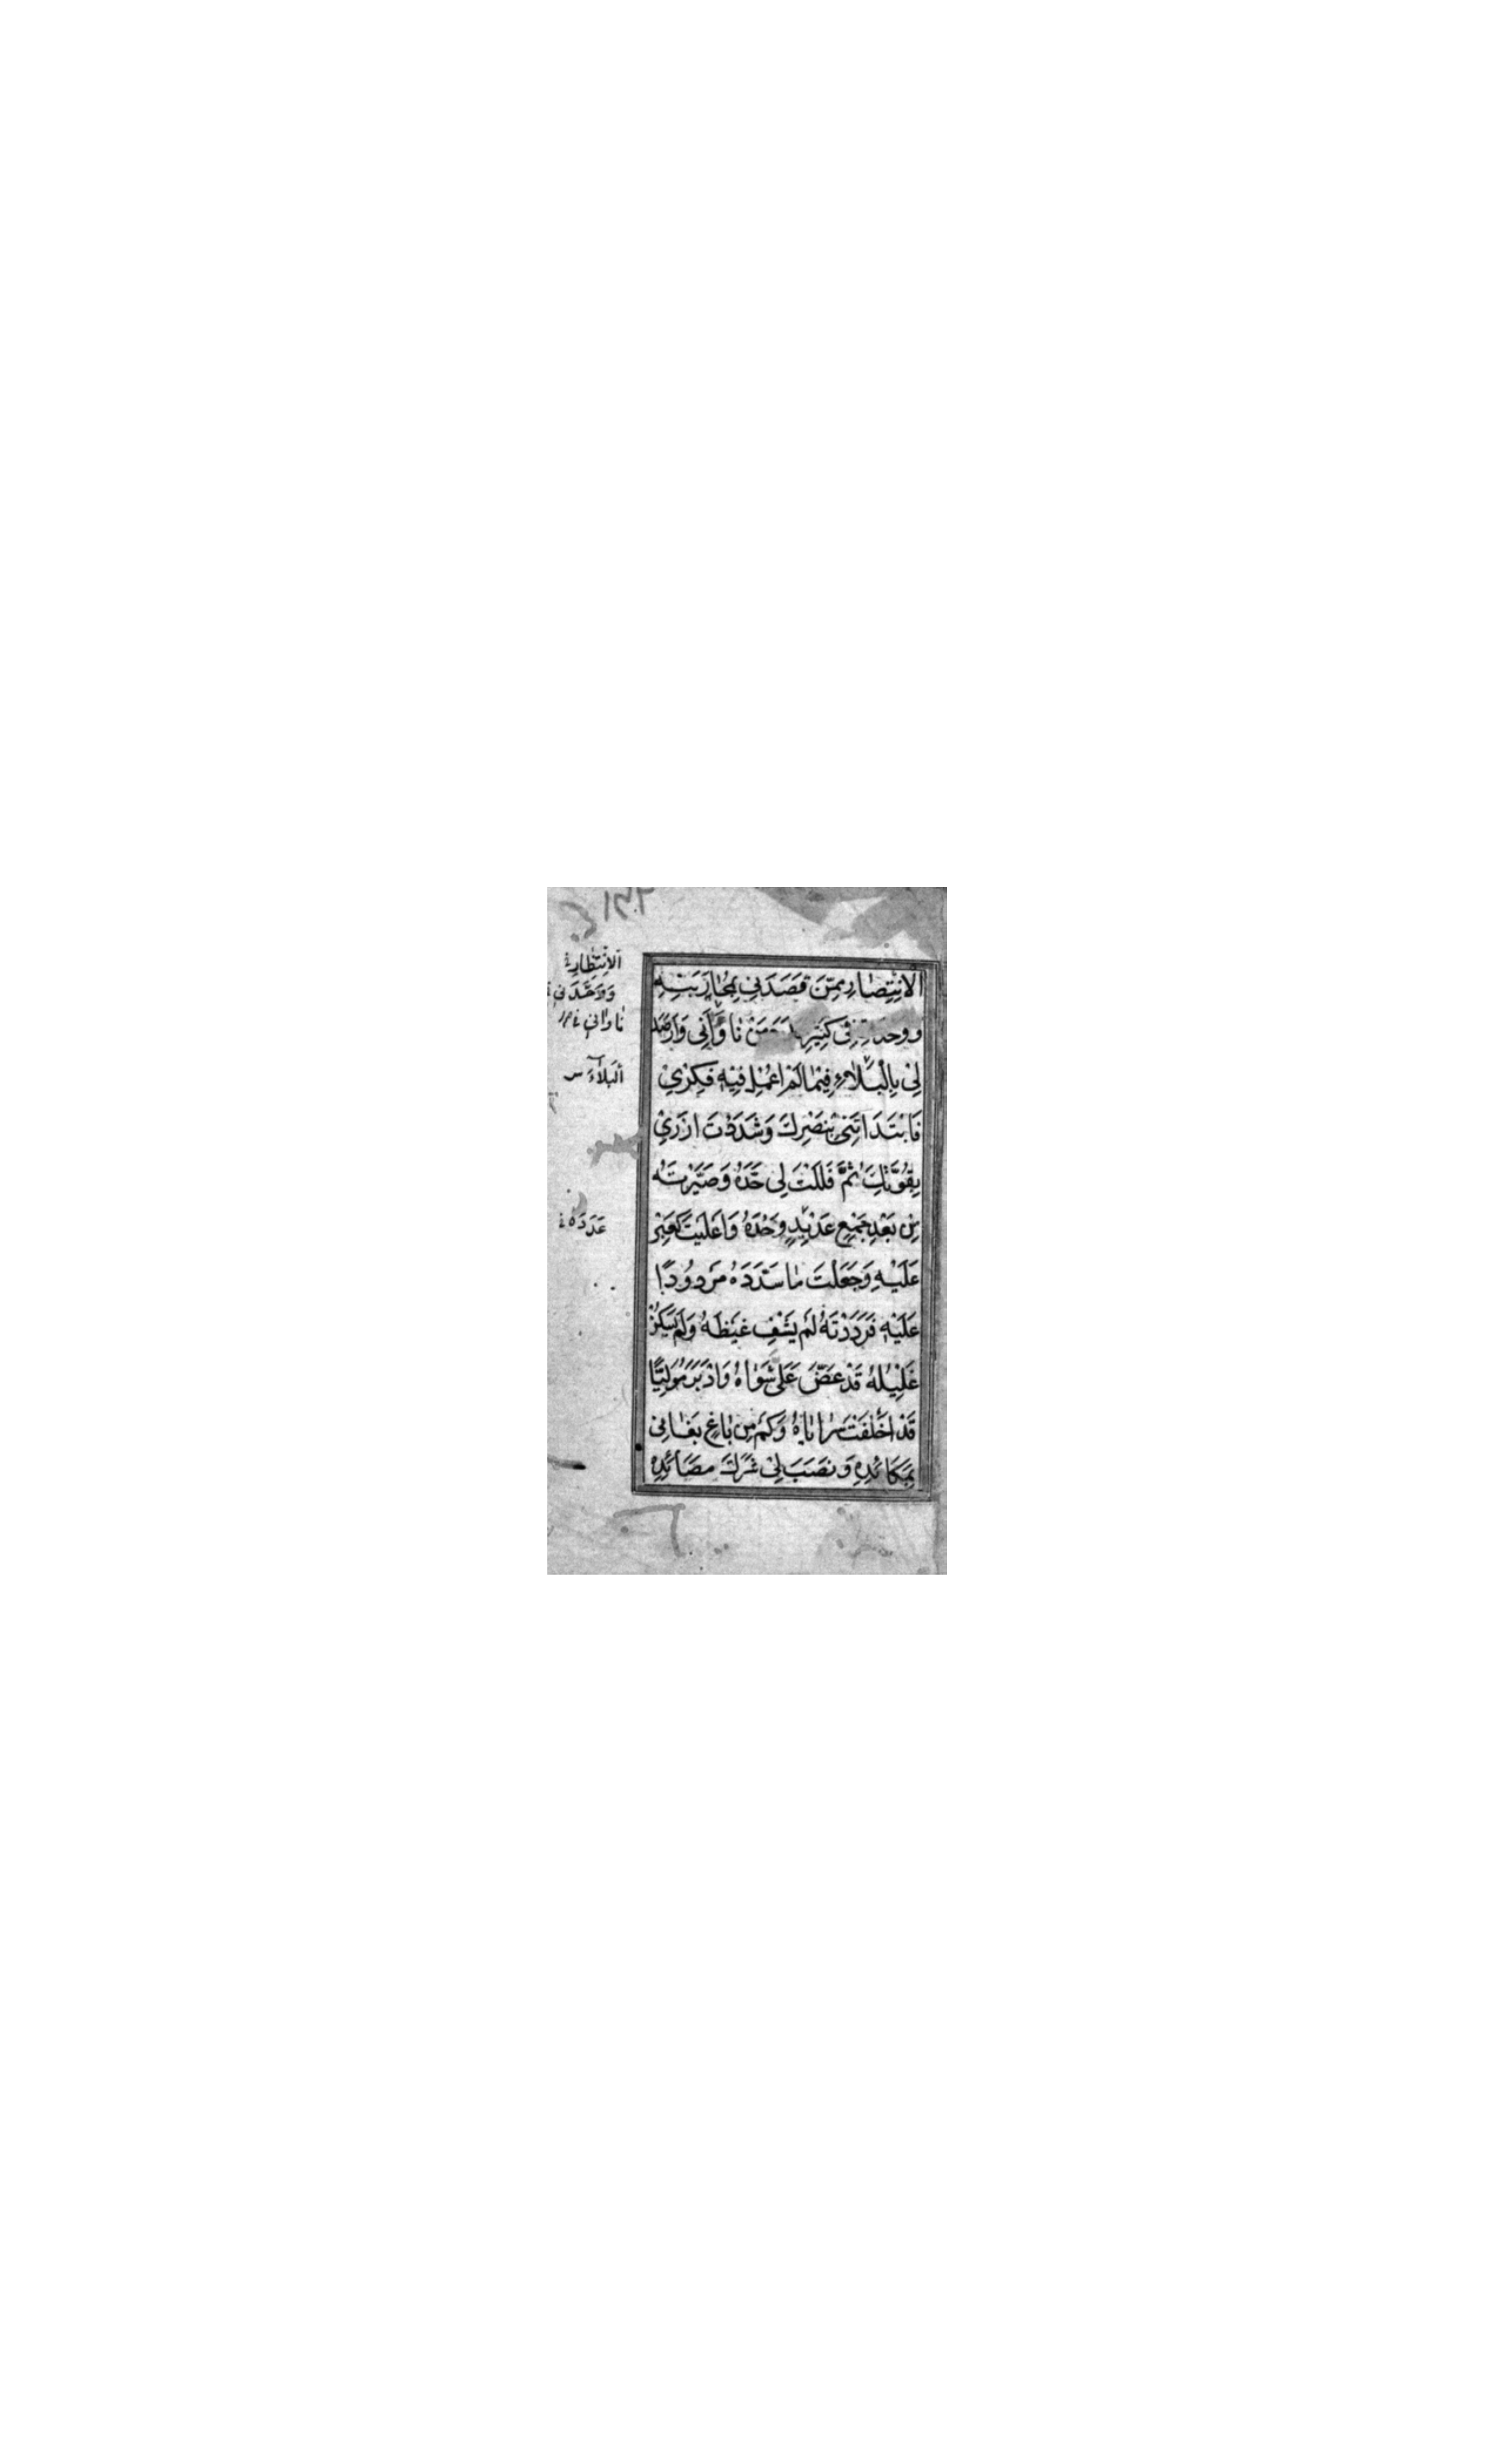 الانْتِصٰارِ مِمَّنْ قَصَدَنِي بِمُحٰارَبَتِهِ
وَوَحْدَتِي فِي كَثِيرِ عَدَدِ مَنْ نٰاوَأَنِي وَأَرْصَدَ
لِي بِالْبَلٰاءِ فِيمٰا لَمْ اُعْمِلْ فِيهِ فِكْرِي
فَابْتَدَأْتَنِي بِنَصْرِكَ وَشَدَدْتَ ازْرِي
بِقُوَّتِكَ ثُمَّ فَلَلْتَ لِي حَدَّهُ وَصَيَّرْتَهُ
مِنْ بَعْدِ جَمْعِ عَدِيدٍ وَحْدَهُ وَاَعْلَيْتَ كَعْبِي
عَلَيْهِ وَجَعَلْتَ مٰا سَدَّدَهُ مَرْدُودًا
عَلَيْهِ فَرَدَدْتَهُ لَمْ يَشْفِ غَيْظَهُ وَلَمْ يَسْكُنْ
غَلِيلُهُ قَدْ عَضَّ عَلَى شَوٰاهُ وَاَدْبَرَ مُوَلِّيًا
قَدْ اَخْلَفَتْ سَرٰايٰاهُ وَكَمْ مِنْ بٰاغٍ بَغٰانِي
بِمَكَائِدِهِ وَنَصَبَ لِي شَرَكَ مَصَائِدِهِ
الانْتِظٰارِ
وَوَحَّدَنِي
نٰاوٰانِي
اَلْبَلٰاءَ س
عَدَدِهِ